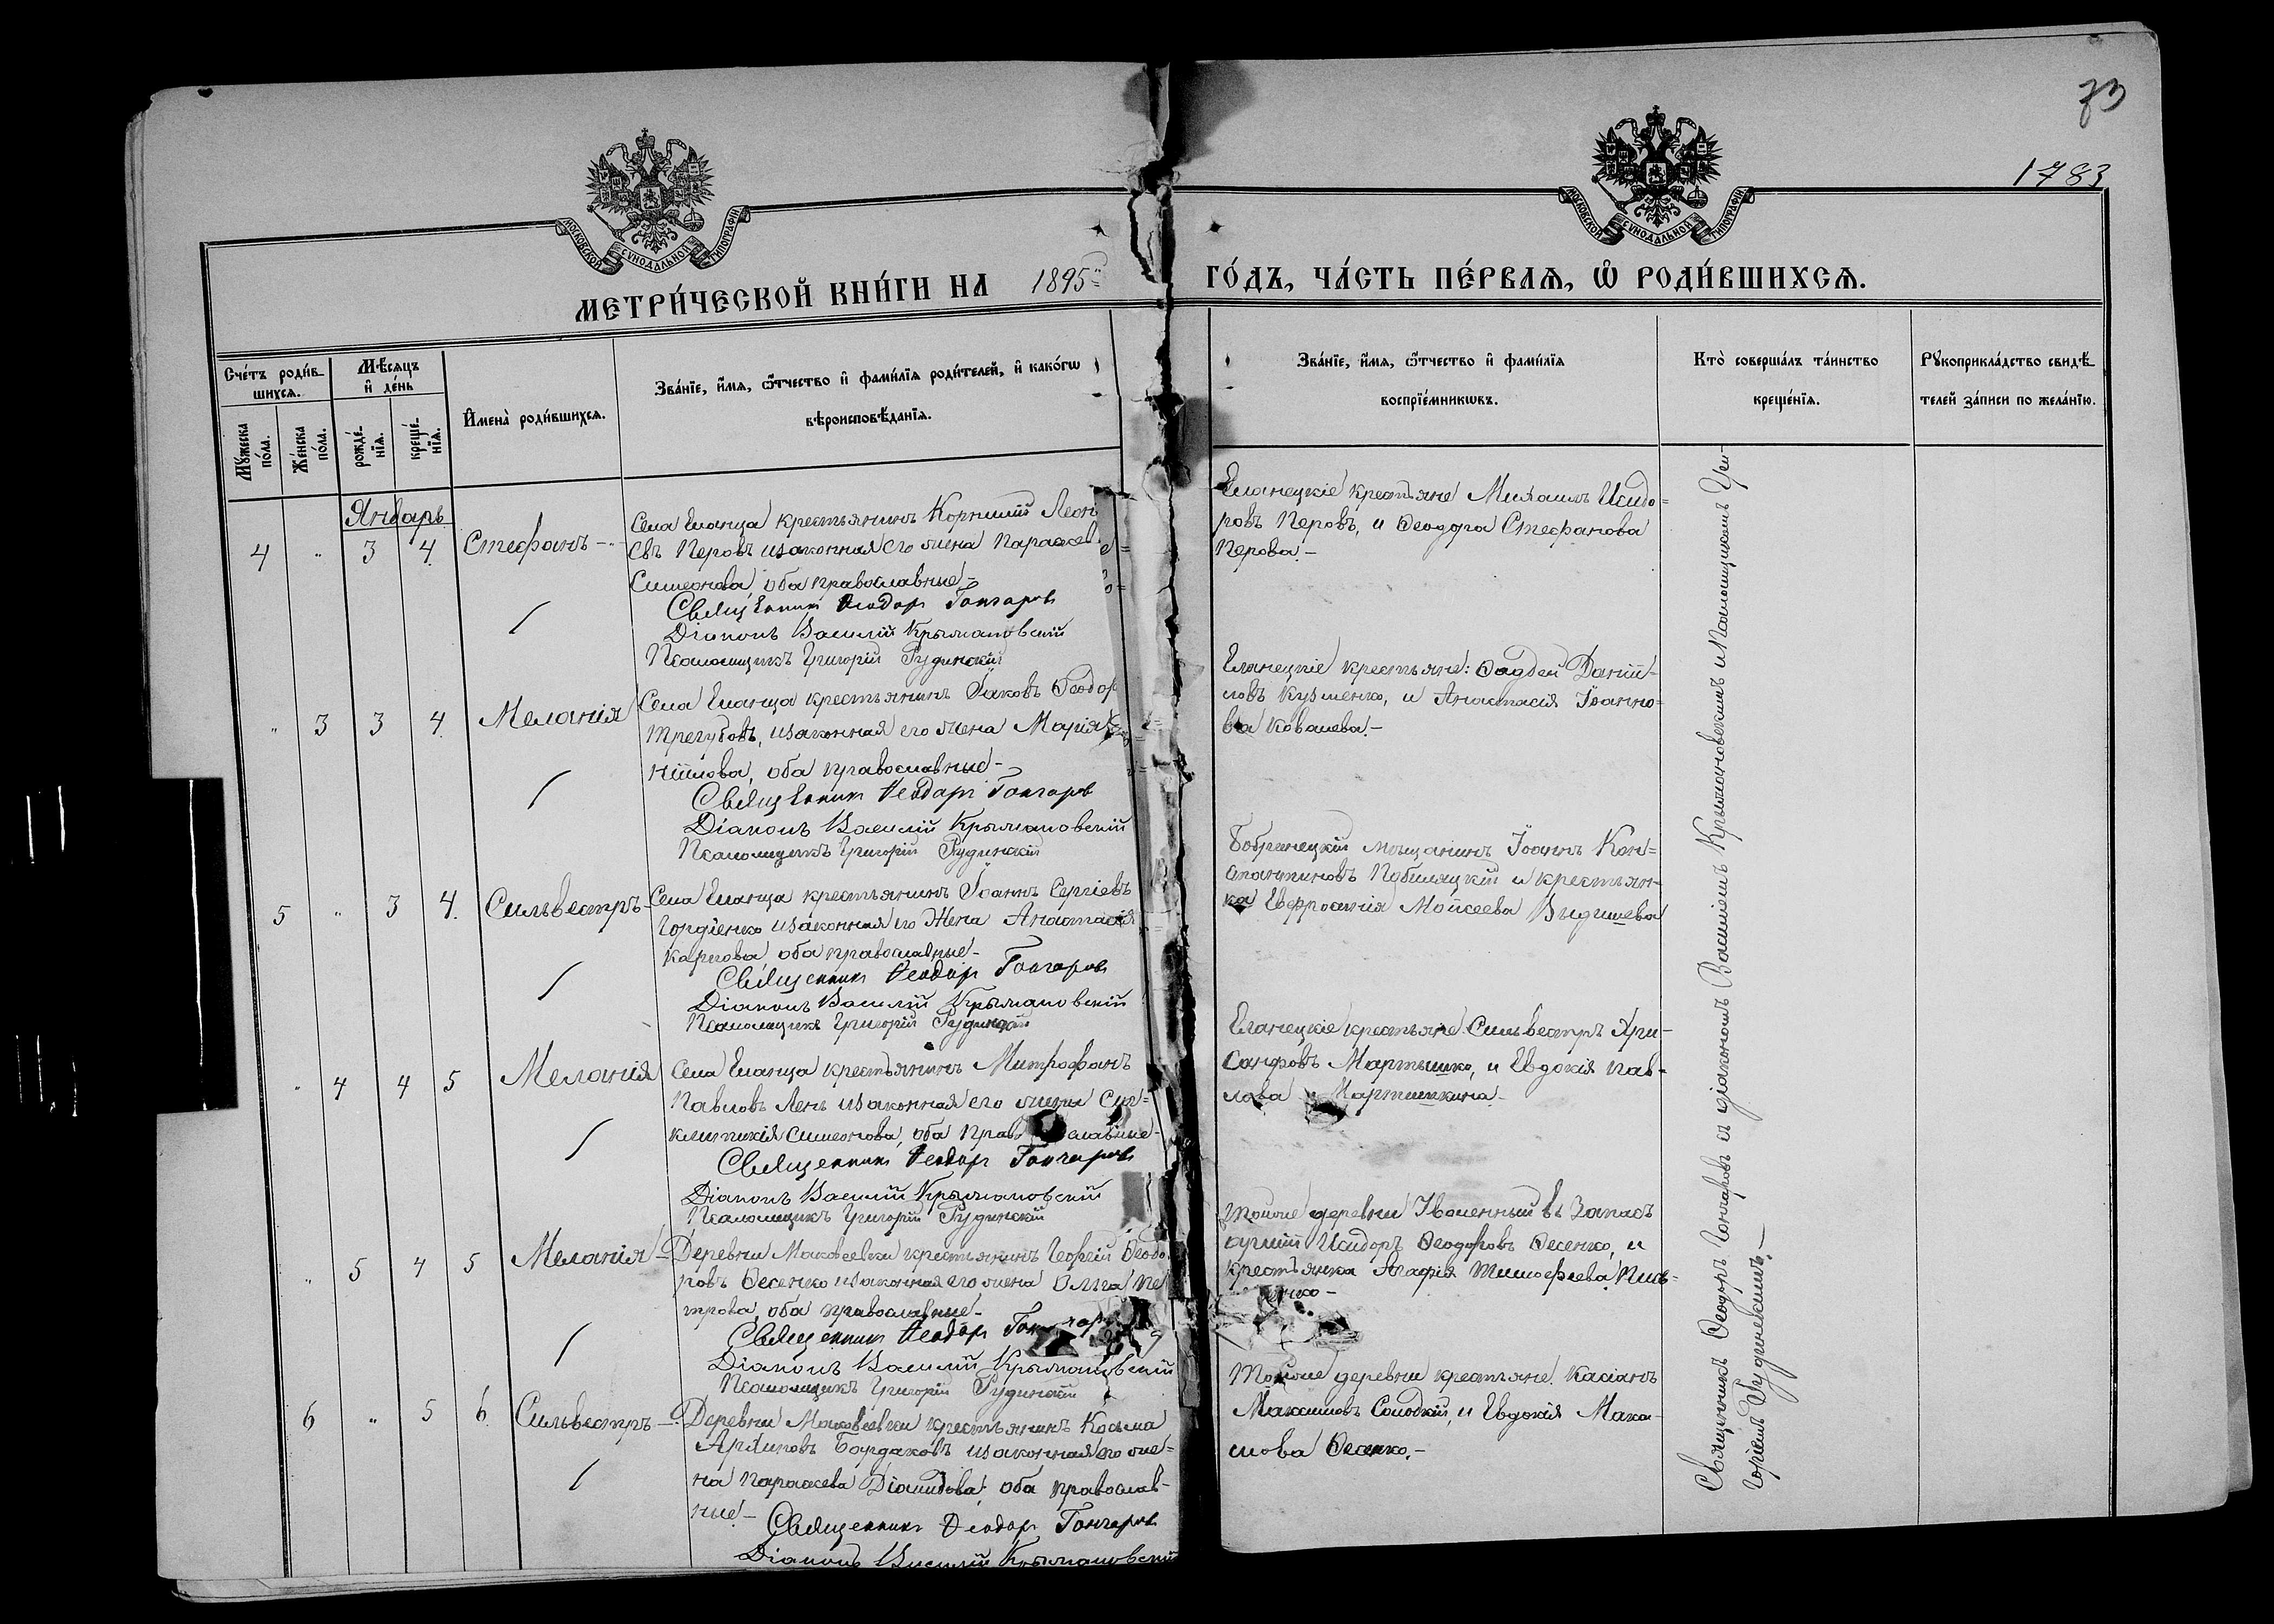 73
1783
МОСКОВСКОЙ СѴНОДАЛЬНОЙ ТИПОГРАФІИ
МОСКОВСКОЙ СѴНОДАЛЬНОЙ ТИПОГРАФІИ
МЕТРИ́ЧЕСКОЙ КНИ́ГИ НА 1895й ГО́ДЪ, ЧА́СТЬ ПЕ́РВАѦ, Ѿ РОДИ́ВШИХСѦ.
Сче́тъ роди́в-
шихсѧ.
Мꙋ́жеска по́ла.
Же́нска по́ла.
Мѣ́сѧцъ
и҆ де́нь
рожде́-
нїѧ.
креще́-
нїѧ.
И҆мена̀ роди́вшихсѧ.
Зва́нїе, и҆́мѧ, ѻ҆́тчество и҆ фамі́лїѧ роди́телей, и҆ како́гѡ
вѣроисповѣ́данїѧ.
Зва́нїе, и҆́мѧ, ѻ҆́тчество и҆ фамі́лїѧ
воспрїе́мникѡвъ.
Кто̀ соверша́лъ та́инство
креще́нїѧ.
Рꙋкоприкла́дство свидѣ́-
телей за́писи по жела́нїю.
Январь
4 " 3 4. Стефанъ -
Села Еланца крестьянинъ Корнилій Леон
евъ Перовъ и законная его жена Параскев
Симеонова, оба православные -
Священникъ Ѳеодоръ Гончаровъ
Діаконъ Василій Крыжановскій
Псаломщикъ Григорій Рудинскій
Еланецкіе крестьяне Михаилъ Исидо=
ровъ Перовъ, и Ѳеодора Стефанова
Перова. -
" 3 3 4. Меланія
Села Еланца крестьянинъ Іаковъ Ѳеодор
Трегубовъ, и законная его жена Марія
ніилова, оба православные -
Священникъ Ѳеодоръ Гончаровъ
Діаконъ Василій Крыжановскій
Псаломщикъ Григорій Рудинскій
Еланецкіе крестьяне: Ѳаддей Даніи-
ловъ Кузменко, и Анастасія Іоанно=
ва Ковалева. -
5 " 3 4. Сильвестръ -
Села Еланца крестьянинъ Іоаннъ Сергіевъ
Гордіенко и законная его жена Анастасія
Карпова, оба православные -
Священникъ Ѳеодоръ Гончаровъ
Діаконъ Василій Крыжановскій
Псаломщикъ Григорій Рудинскій
Бобринецкій мѣщанинъ Іоаннъ Кон=
стантиновъ и крестьян-
ка Евфросинія Моисеева
" 4 4 5 Меланія
Села Еланца крестьянинъ Митрофанъ
Павловъ Лень и законная его жена Син=
клитикія Симеонова, оба православные -
Священникъ Ѳеодоръ Гончаровъ
Діаконъ Василій Крыжановскій
Псаломщикъ Григорій Рудинскій
Еланецкіе крестьяне Сильвестръ Хри-
санфовъ Мартышко, и Евдокія Пав-
лова Мартышкина -
" 5 4 5 Меланія -
Деревни Маковеевки крестьянинъ Георгій Ѳеодо
ровъ Ѳесенко и законная его жена Ольга Пе
трова, оба православные -
Священникъ Ѳеодоръ Гончар
Діаконъ Василій Крыжановскій
Псаломщикъ Григорій Рудинскій
Тойже деревни Уволенный въ Запасъ
арміи Исидоръ Ѳеодоровъ Ѳесенко, и
крестьянка Агафія Тимофеева
6 " 5 6. Сильвестръ -
Деревни Маковеевки крестьянинъ Косьма
Архиповъ Бордаковъ и законная его же=
на Параскева Діамидова, оба православ-
ные. -
Священникъ Ѳеодоръ Гончаровъ
Діаконъ Василій Крыжановскій
Тойже деревни крестьяне. Касіанъ
Максимовъ Солодкій, и Евдокія Макси-
мова Ѳесенко. -
Священникъ Ѳеодоръ Гончаровъ съ діакономъ Василіемъ Крыжановскимъ и Псаломщикомъ Гри-
горіемъ Рудинскимъ. -